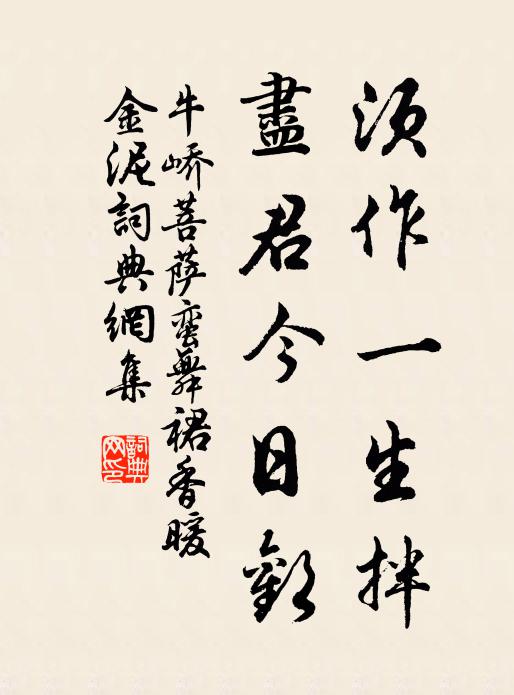 須作一生拌
盡君今日歡
牛嶠菩薩蠻舞裙香暖
金泥詞典網集
詞典网印